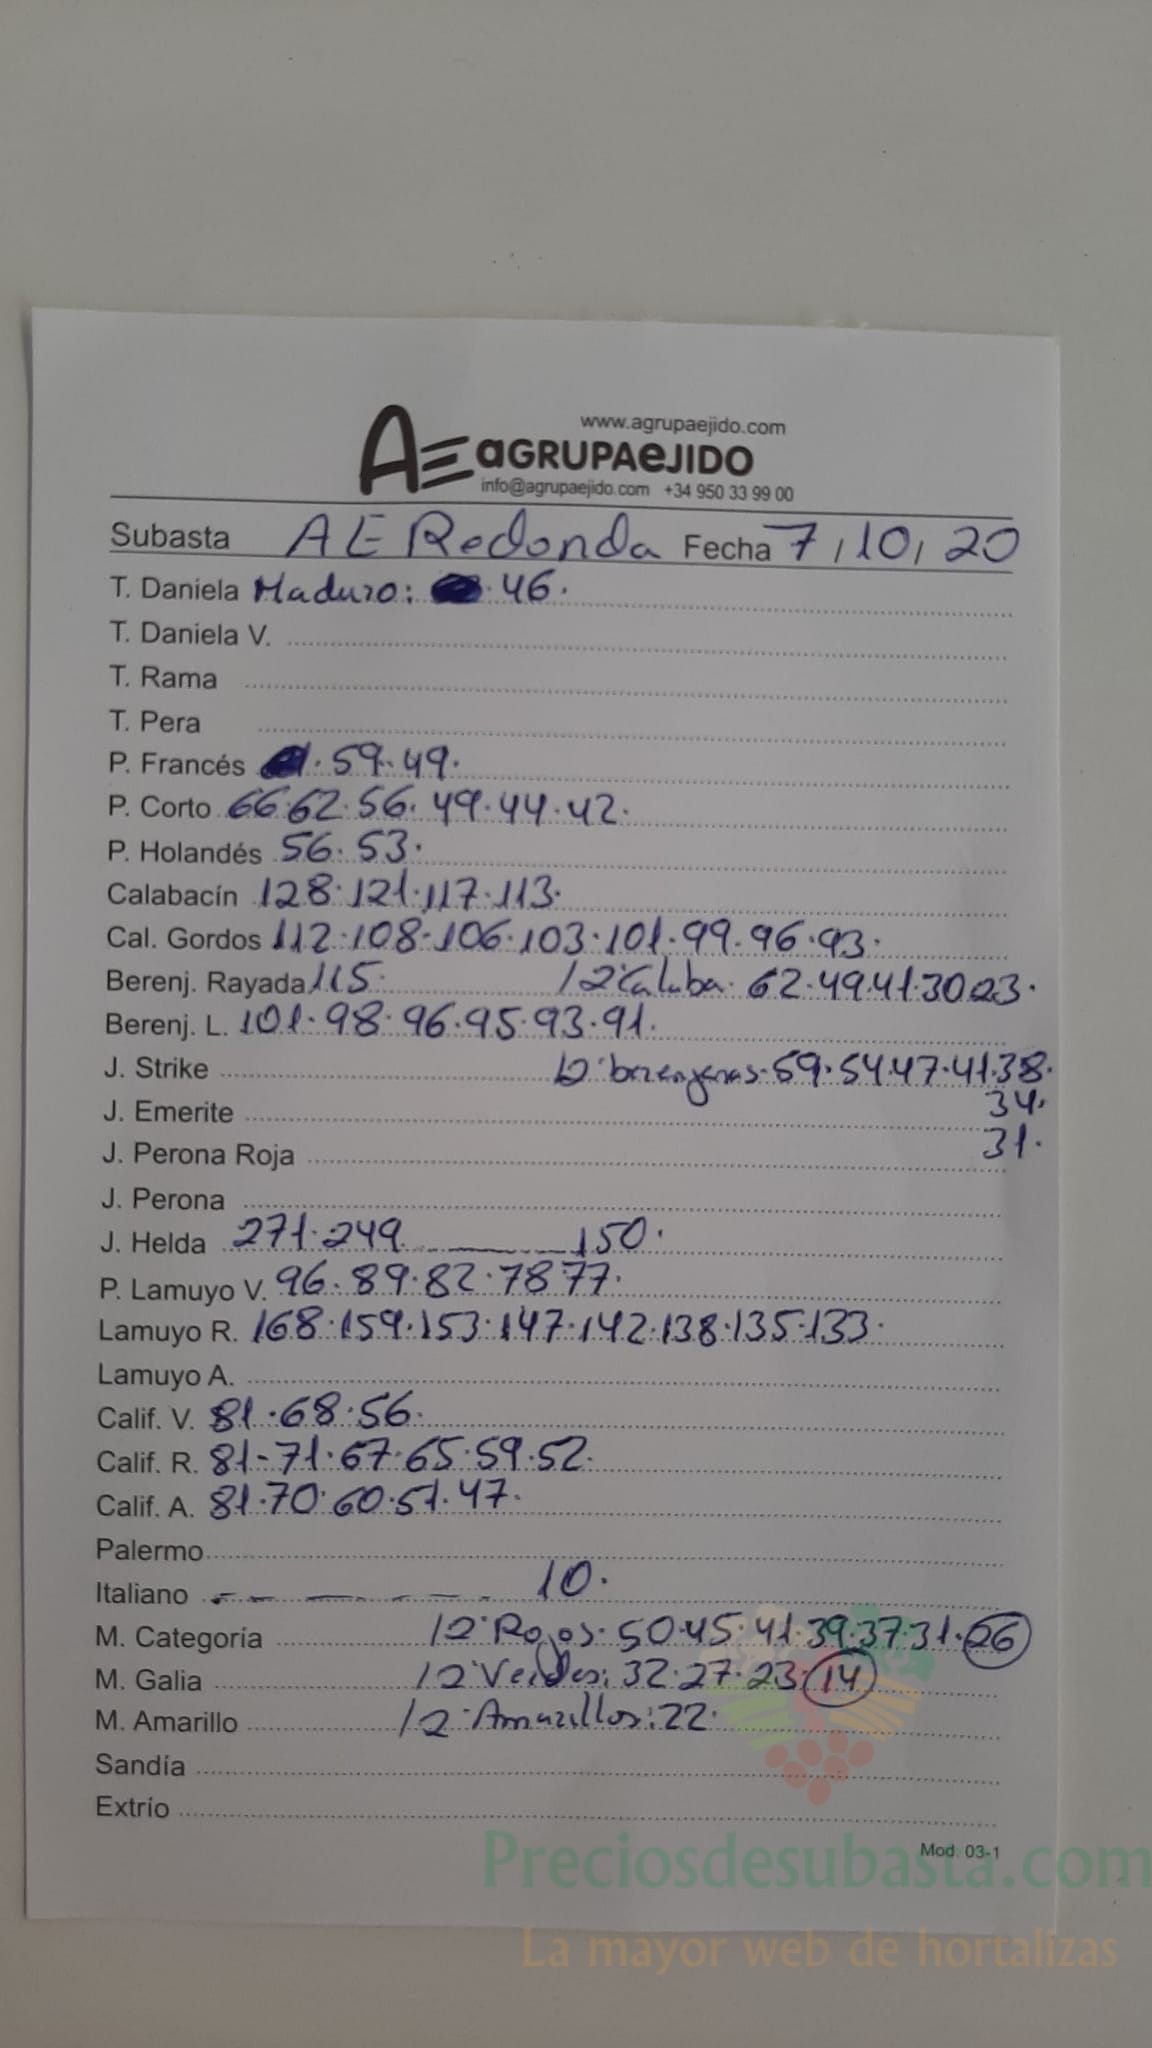 www.agrupaejido.com
AE aGRUPAeJIDO
info@agrupaejido.com +34 950 33 99 00
Subasta AE Redonda Fecha 7/10/20
T. Daniela Maduro: 46.
T. Daniela V.
T. Rama
T. Pera
P. Francés 59.49.
P. Corto 66.62.56.49.44.42.
P. Holandés 56.53.
Calabacín 128.121.117.113.
Cal. Gordos 112.108.106.103.101.99.96.93.
Berenj. Rayada 115. 12ª Calaba. 62.49.41.30.23.
Berenj. L. 101.98.96.95.93.91.
J. Strike berenjenas.59.54.47.41.38.
J. Emerite 34.
J. Perona Roja 31.
J. Perona
J. Helda 271.249. 150.
P. Lamuyo V. 96.89.82.78.77.
Lamuyo R. 168.159.153.147.142.138.135.133.
Lamuyo A.
Calif. V. 81.68.56.
Calif. R. 81-71.67.65.59.52.
Calif. A. 81.70.60.51.47.
Palermo
Italiano 10.
M. Categoría 12ª Rojos. 50.45.41.39.37.31.26
M. Galia 12ª Verdes: 32.27.23.14
M. Amarillo 12ª Amarillos: 22.
Sandía
Extrío
Mod. 03-1
Preciosdesubasta.com
La mayor web de hortalizas